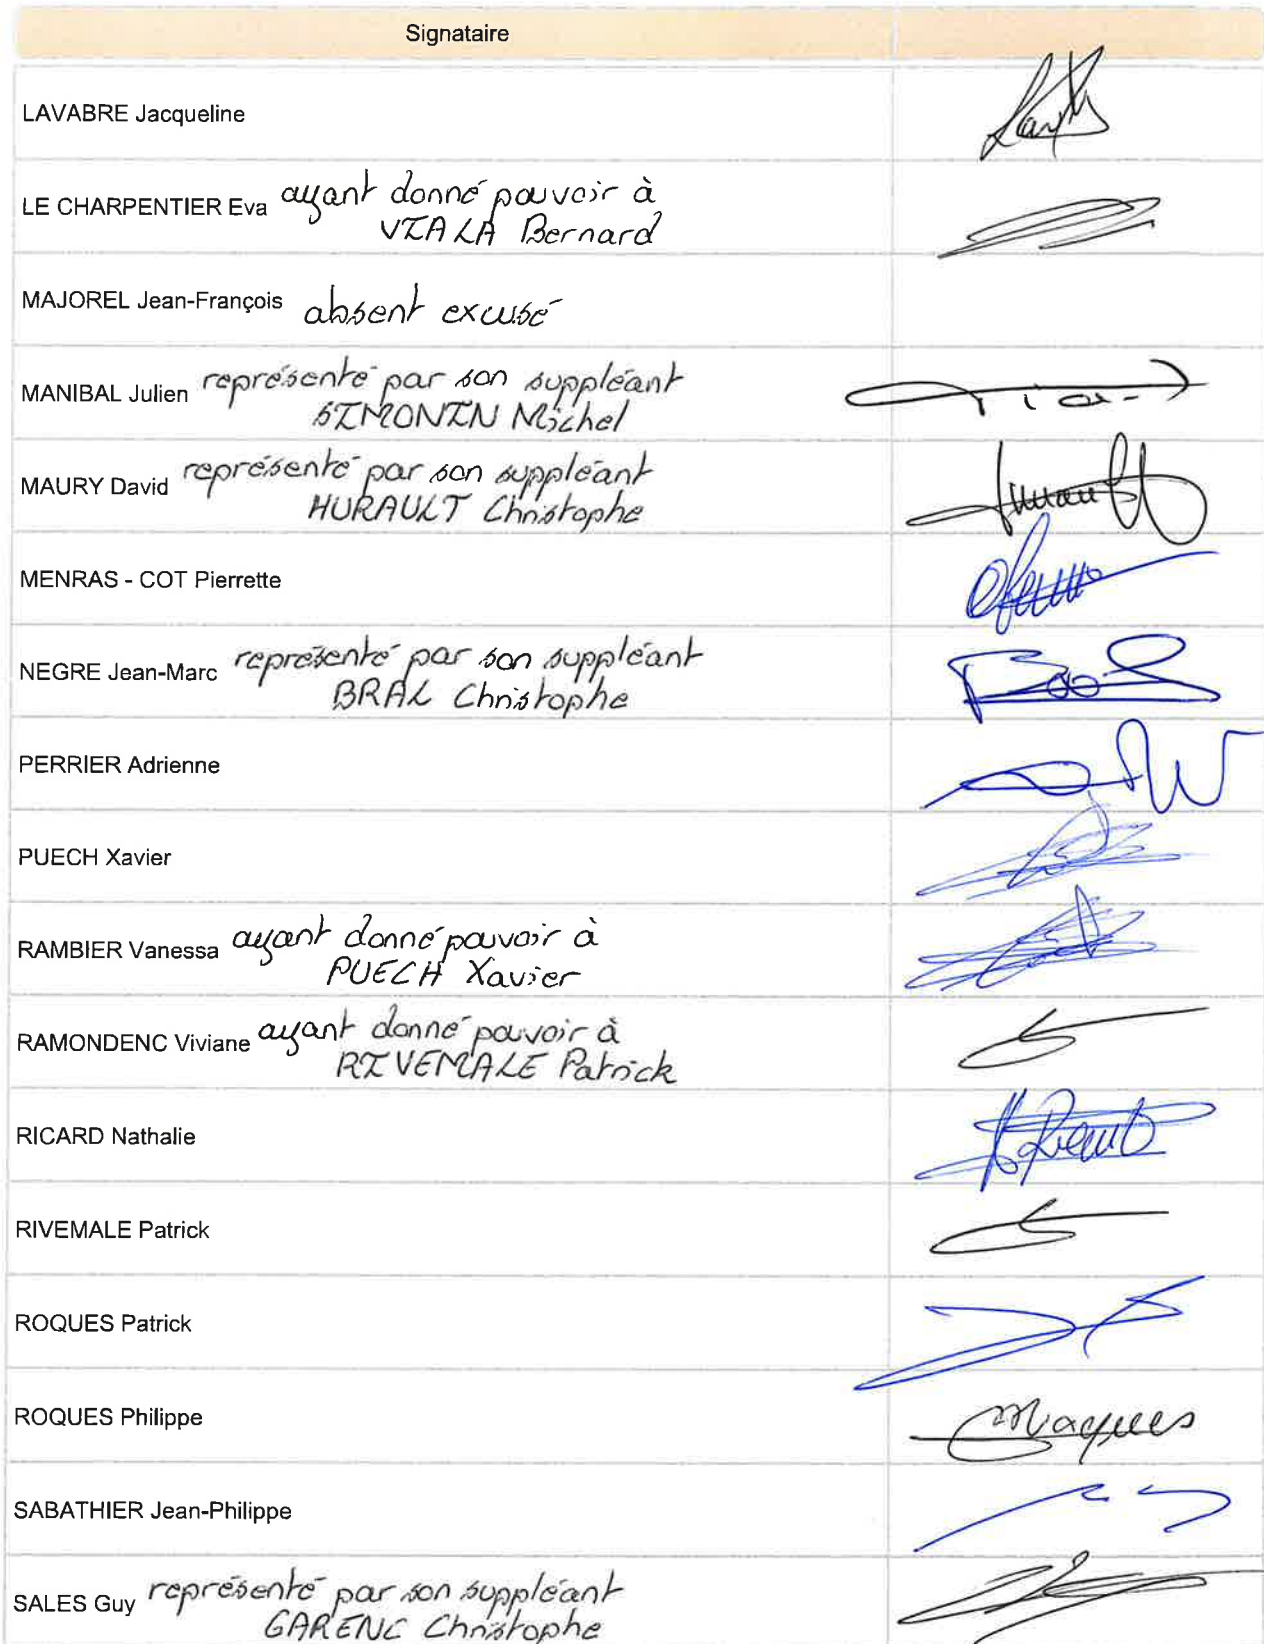 Signataire
LAVABRE Jacqueline
LE CHARPENTIER Eva ayant donné pouvoir à
VIALA Bernard
MAJOREL Jean-François absent excusé
MANIBAL Julien représenté par son suppléant
SIMONIN Michel
MAURY David représenté par son suppléant
HURAULT Christophe
MENRAS - COT Pierrette
NEGRE Jean-Marc représenté par son suppléant
BRAL Christophe
PERRIER Adrienne
PUECH Xavier
RAMBIER Vanessa ayant donné pouvoir à
PUECH Xavier
RAMONDENC Viviane ayant donné pouvoir à
RIVEMALE Patrick
RICARD Nathalie
RIVEMALE Patrick
ROQUES Patrick
ROQUES Philippe
SABATHIER Jean-Philippe
SALES Guy représenté par son suppléant
GARENC Christophe